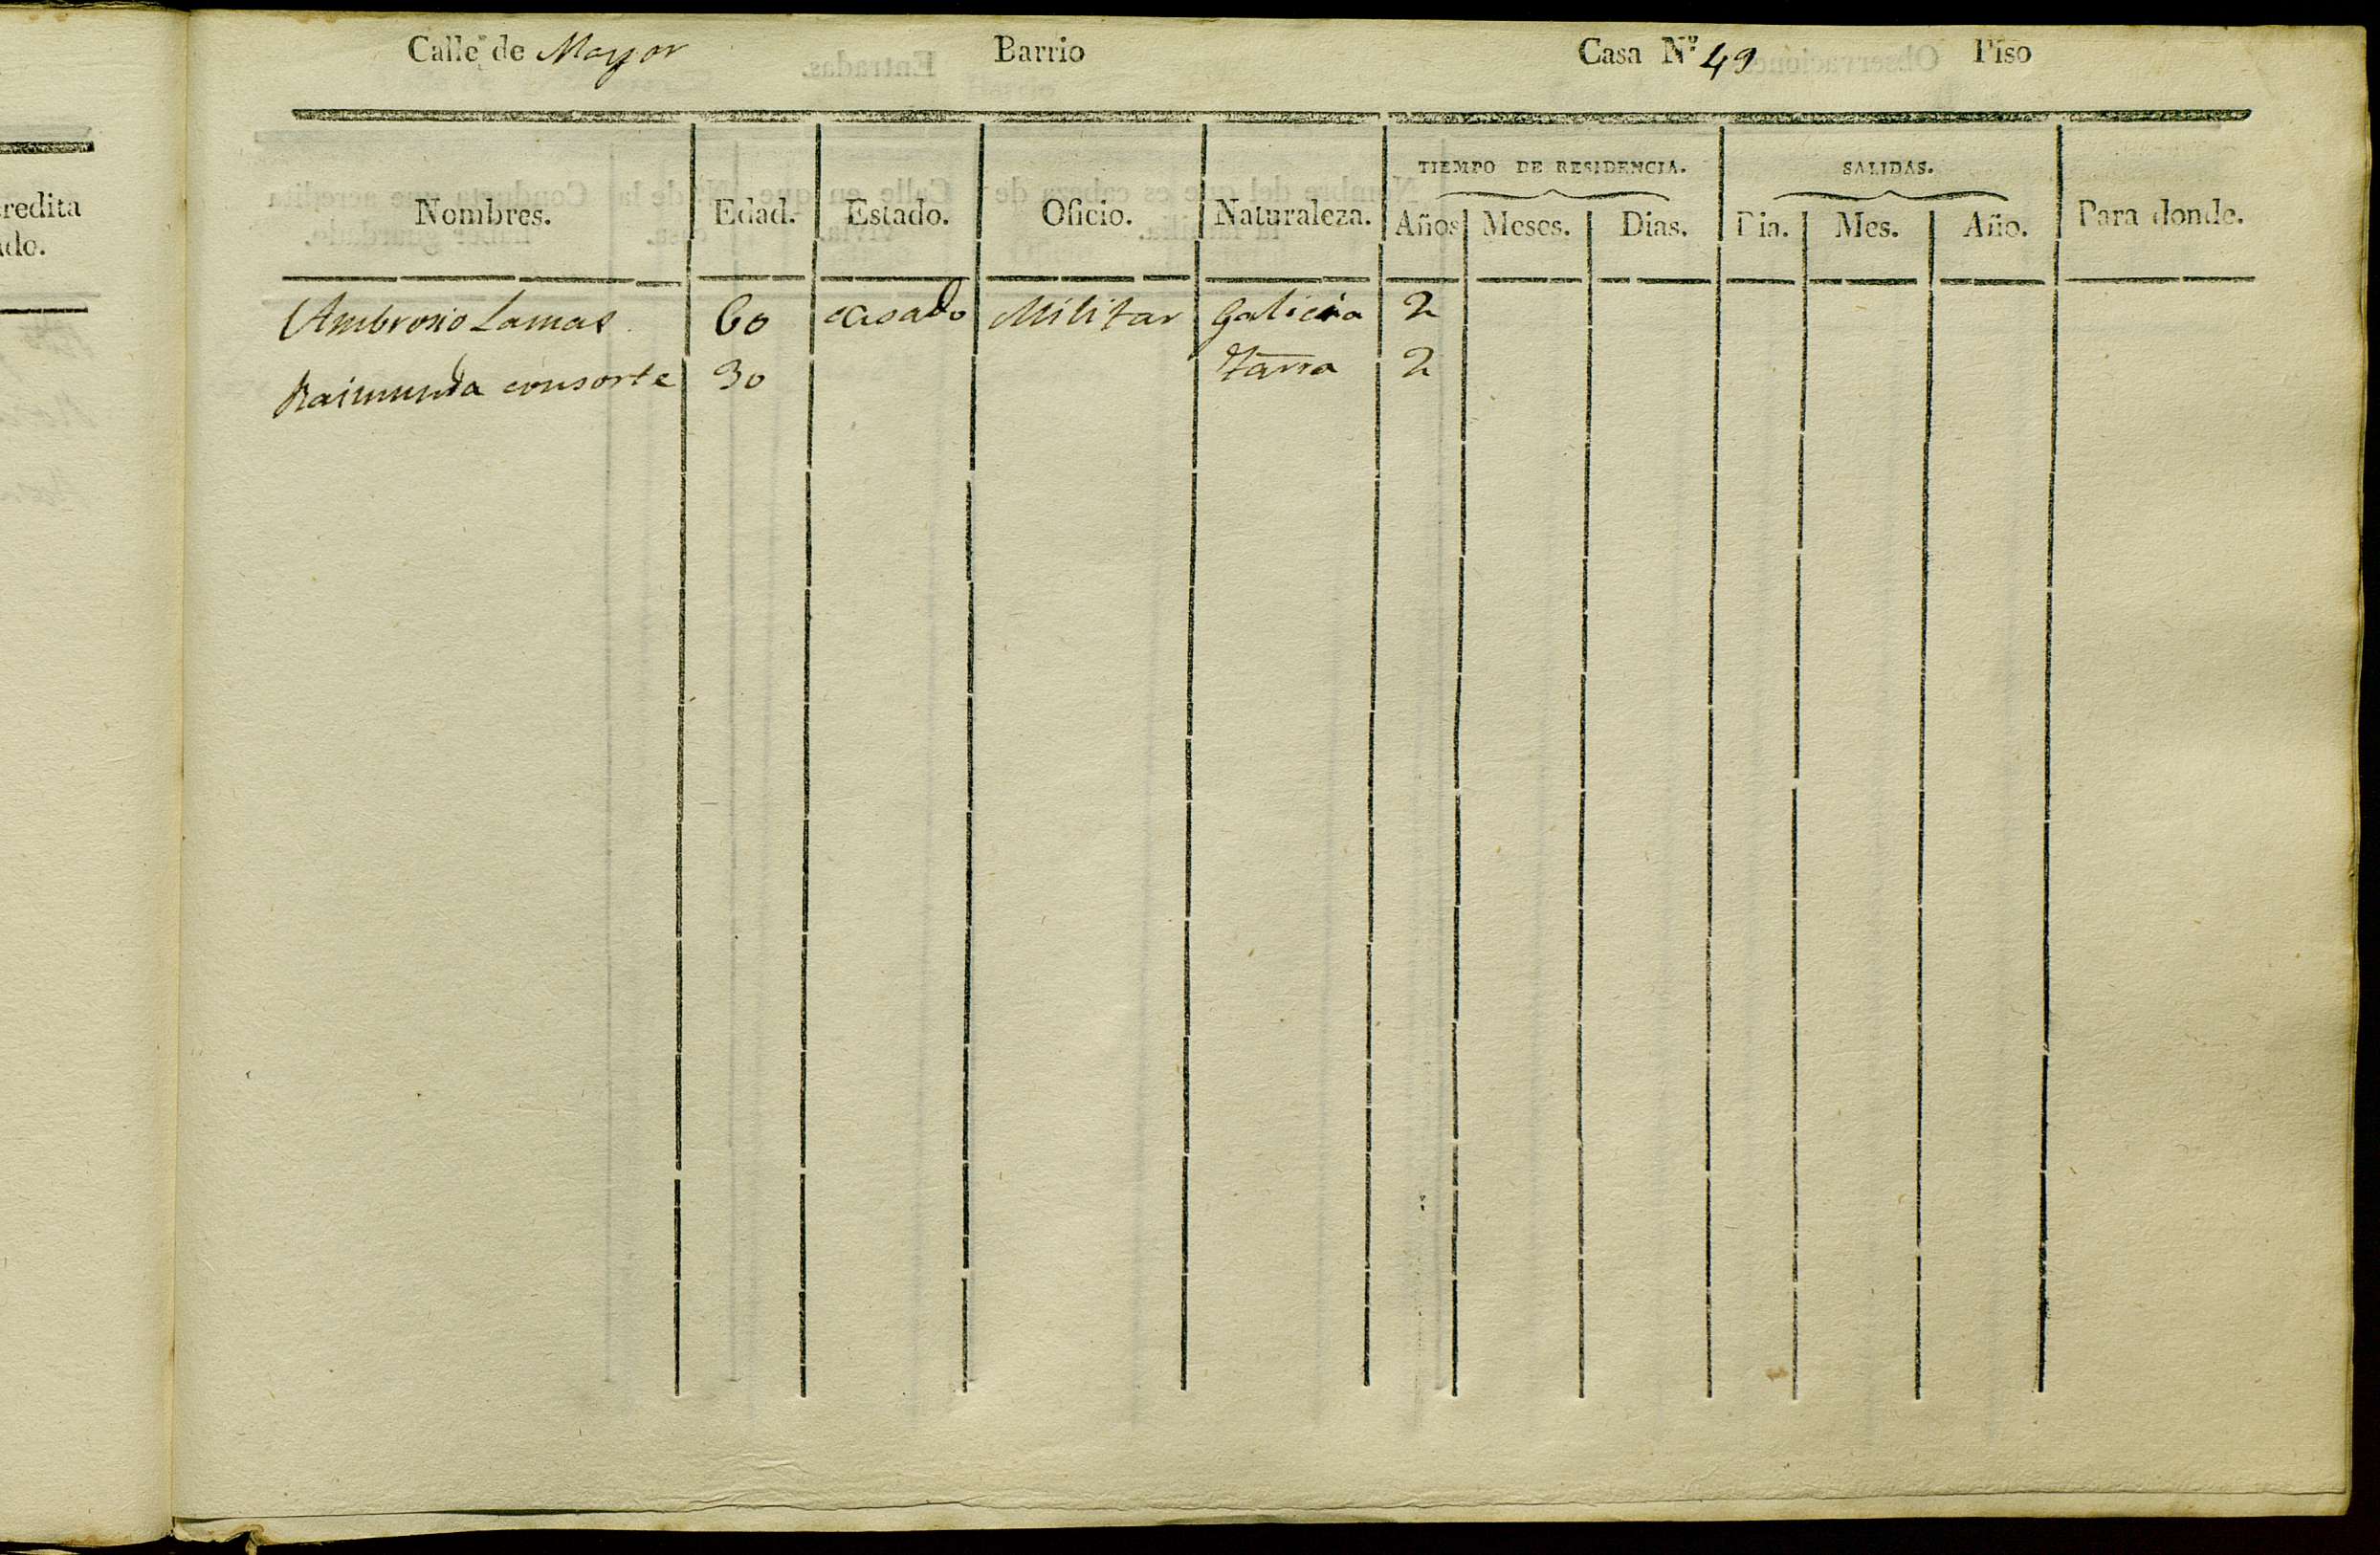 Calle de Mayor Barrio Casa Nº 49 Piso
TIEMPO DE RESIDENCIA. SALIDAS.
Nombres. Edad. Estado. Oficio. Naturaleza. Años Meses. Dias. Dia. Mes. Año. Para donde.
Ambrosio Lamas 60 casado Militar Galicia 2
Raimunda consorte 30 2
redita
do.